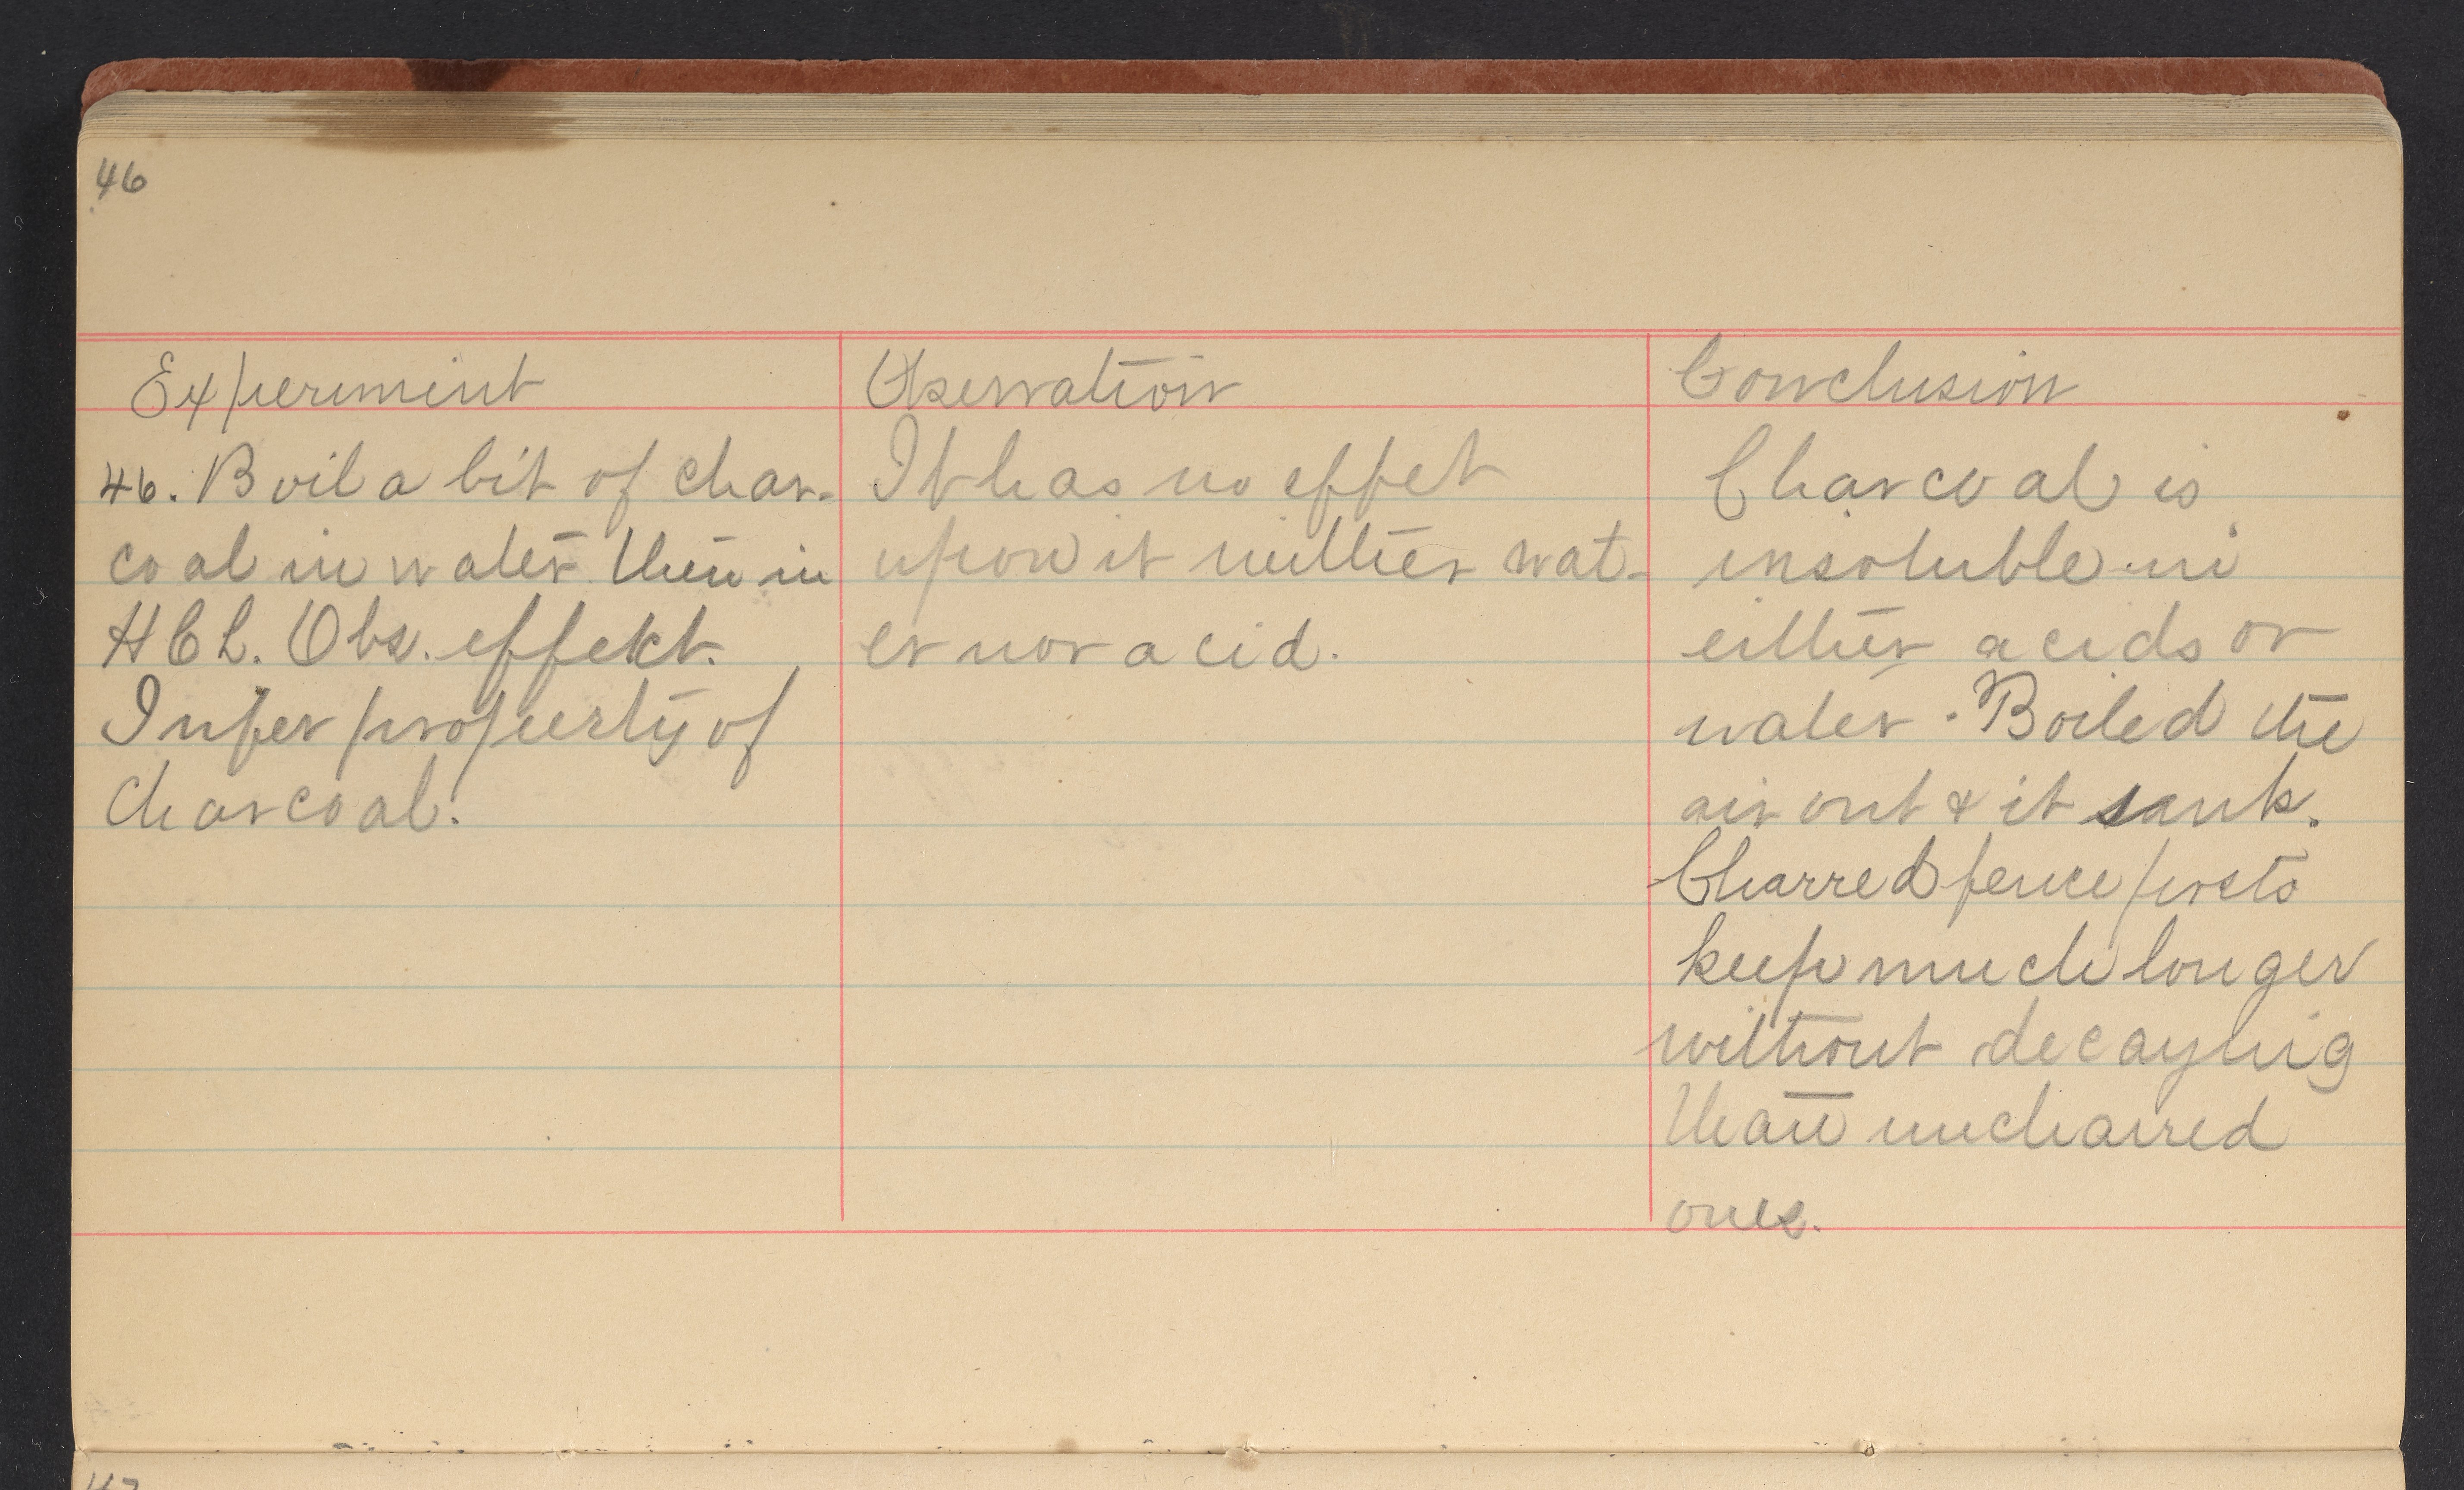 46
Experiment
46. Boil a bit of char-
coal in water then in
HCl. Obs. effekt.
Infer property of
charcoal.
Obseration
It has no effet
upon it neither wat-
er nor acid.
Conclusion
Charcoal is
insoluble in
either acids or
water. Boiled the
air out & it sank.
Charred fence posts
keep much longer
without decaying
than uncharred
ones.